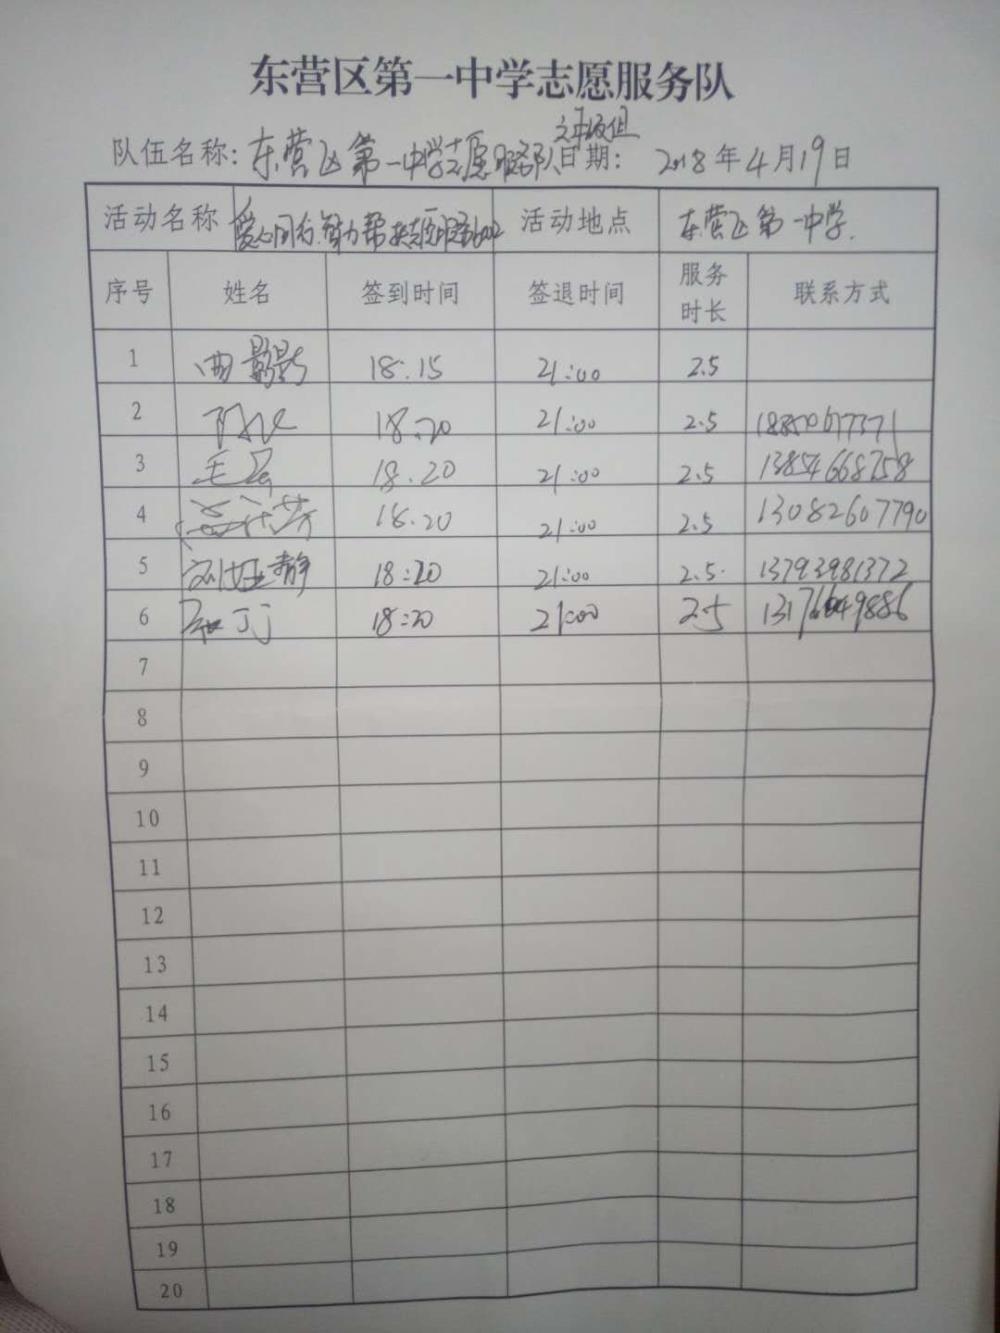 东营区第一中学志愿服务队
队伍名称: 东营区第一中学志愿服务队 日期: 2018年4月19日
活动名称 爱心同行.智力帮扶志愿服务 活动地点 东营区第一中学.
序号 姓名 签到时间 签退时间 服务时长 联系方式
1 曲影影 18:15 21:00 2.5
2 18:20 21:00 2.5
3 18.20 21:00 2.5 13854668758
4 18.20 21:00 2.5 13082607790
5 刘娅静 18:20 21:00 2.5. 13793981372
6 丁丁 18:20 21:00 2.5
7
8
9
10
11
12
13
14
15
16
17
18
19
20